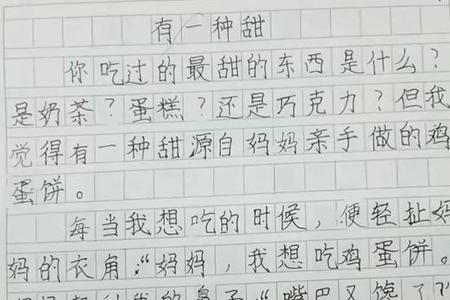 有一种甜
你吃过的最甜的东西是什么？
是奶茶？蛋糕？还是巧克力？但我
觉得有一种甜源自妈妈亲手做的鸡
蛋饼。
每当我想吃的时候，便轻扯妈
妈的衣角：“妈妈，我想吃鸡蛋饼。
我的鼻子“嘴巴又馋了？